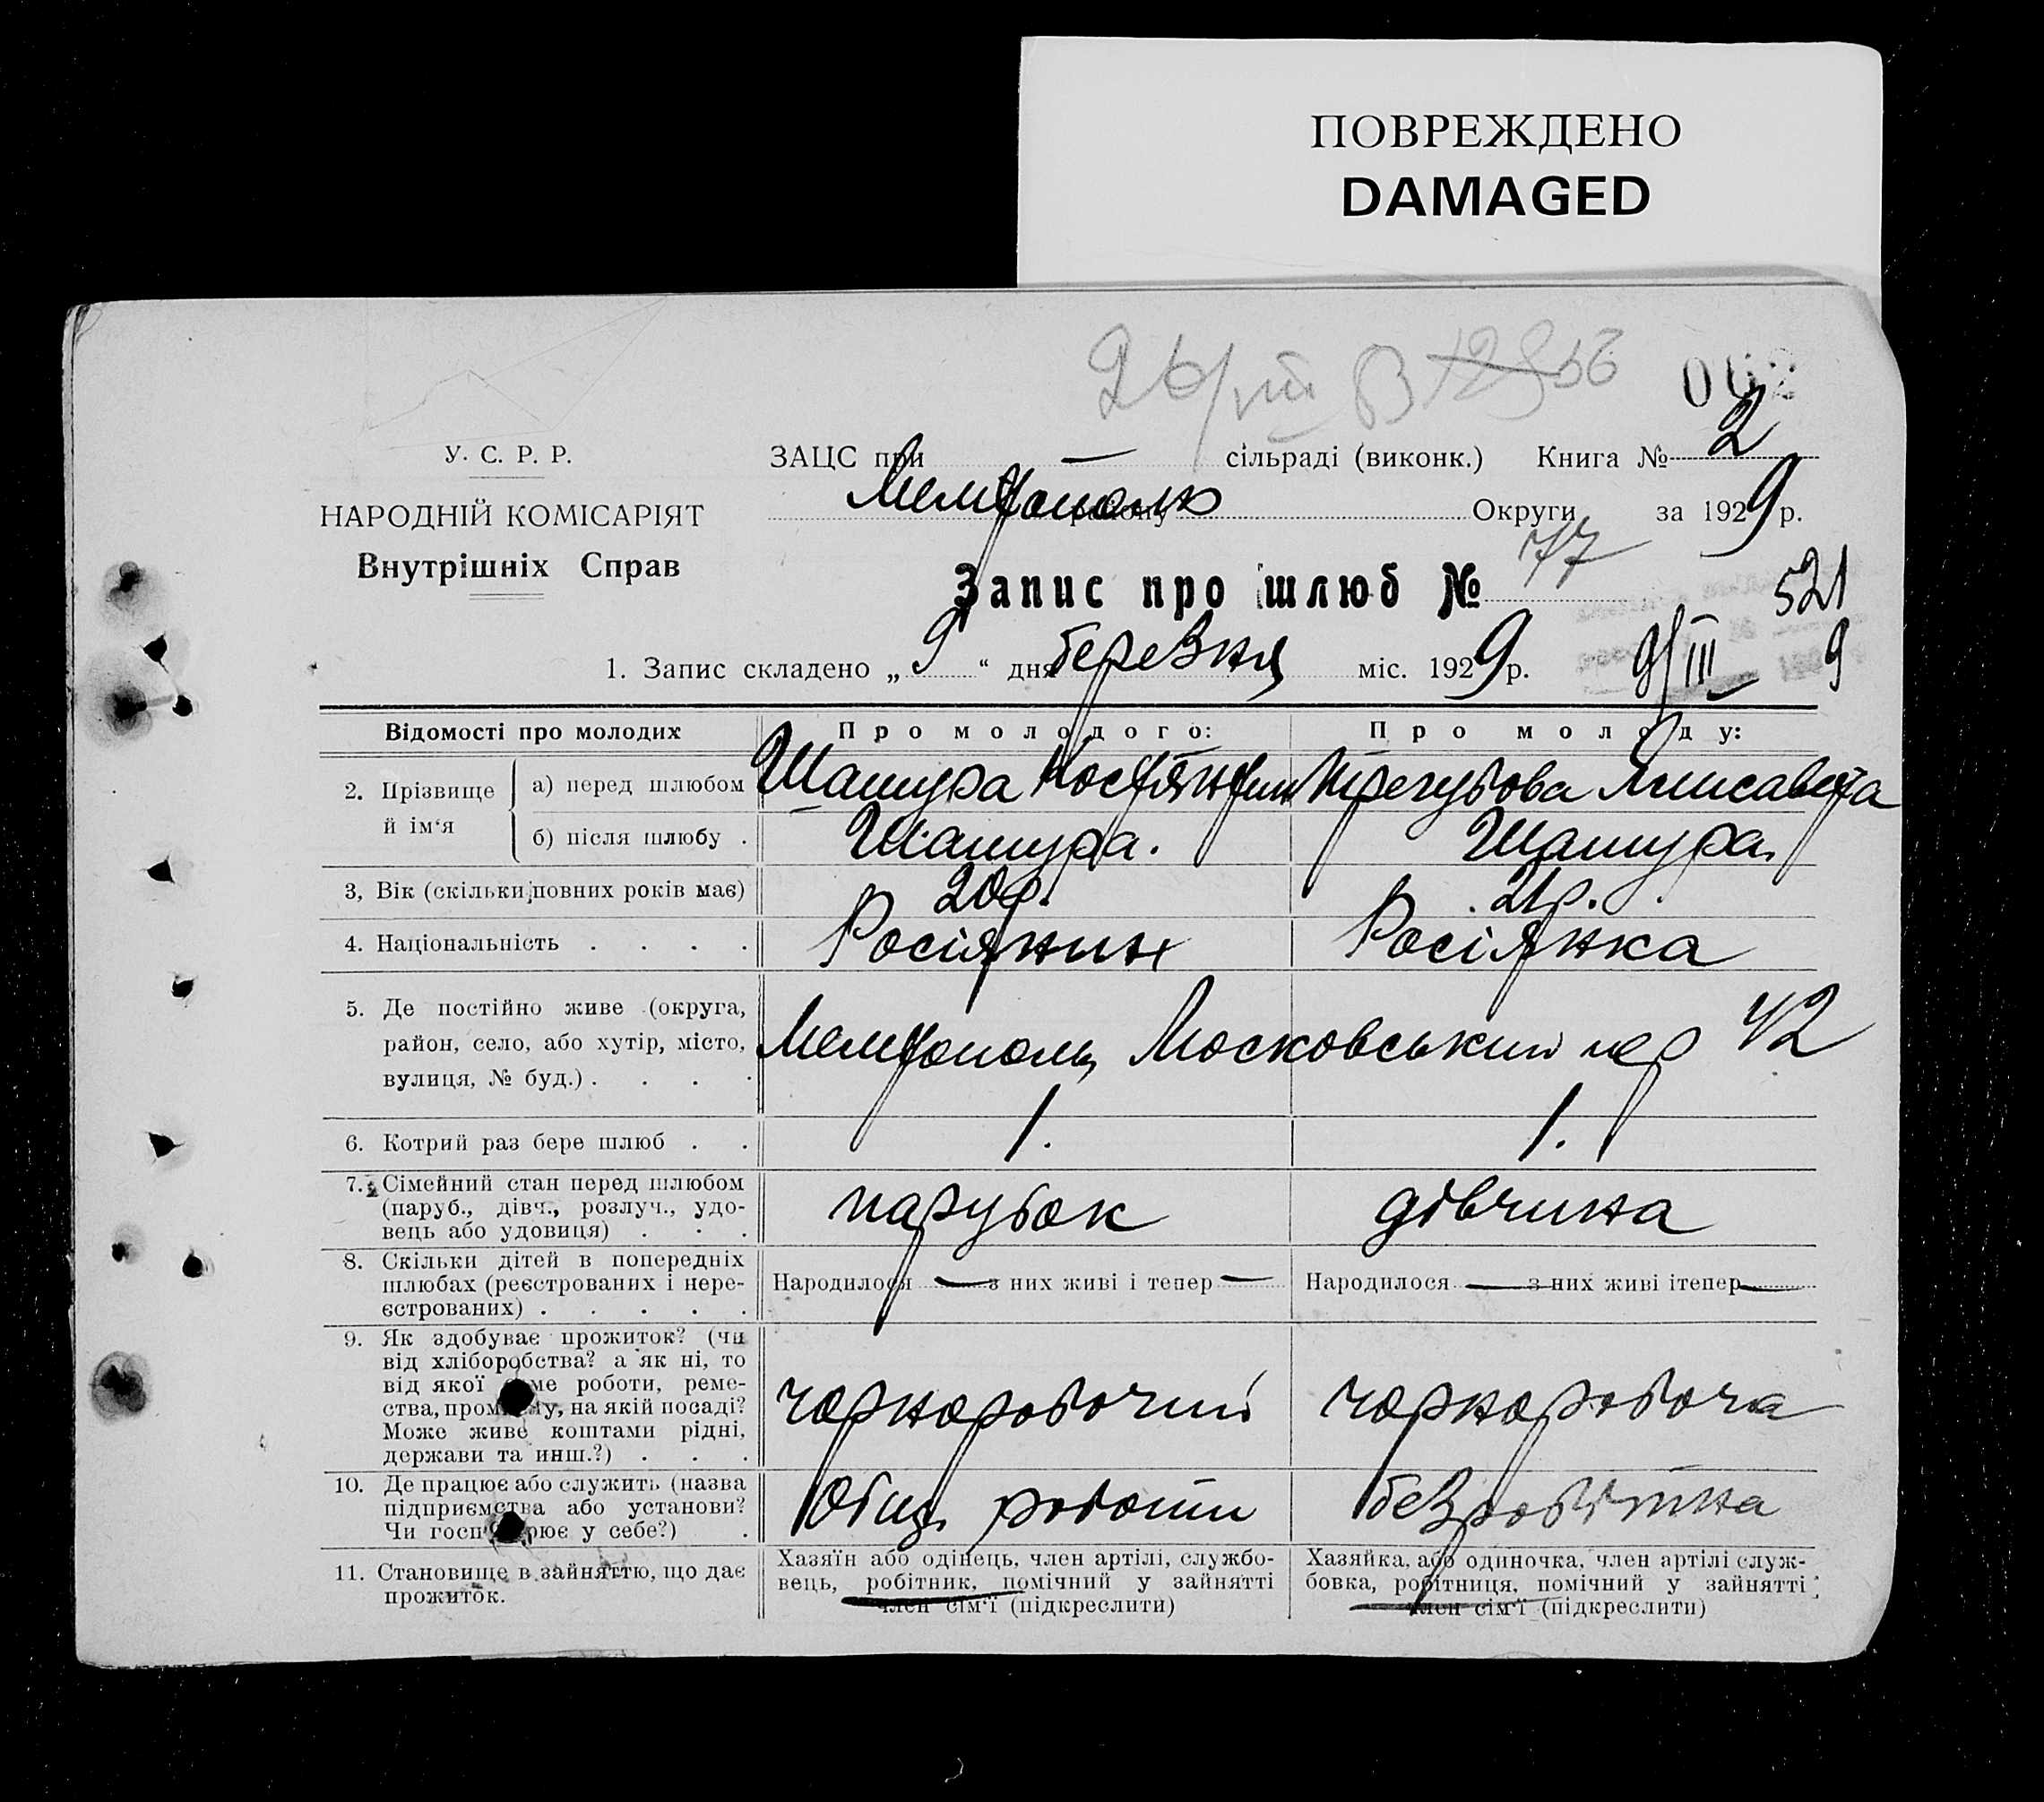 ПОВРЕЖДЕНО
DAMAGED
У. С. Р. Р.
НАРОДНІЙ КОМІСАРІЯТ
Внутрішніх Справ
ЗАЦС при — сільраді (виконк.) Книга № 2
Мелітополь району Округи за 1929 р.
Запис про шлюб № 77
521
1. Запис складено „ 9 “ дня березня міс. 1929 р. 9/III 9
Відомості про молодих
Про молодого:
Про молоду:
2. Прізвище й ім‘я
а) перед шлюбом
Шашура Костянтин
Трегубова Єлисавета
б) після шлюбу .
Шашура.
Шашура.
3, Вік (скільки повних років має)
20р.
21р.
4. Національність . . . .
Росіянин
Росіянка
5. Де постійно живе (округа,
район, село, або хутір, місто,
вулиця, № буд.) . . . .
Мелітополь, Московський пер 42
6. Котрий раз бере шлюб . .
1.
1.
7. Сімейний стан перед шлюбом
(паруб., дівч., розлуч., удо-
вець або удовиця) . . .
парубок
дівчина
8. Скільки дітей в попередніх
шлюбах (реєстрованих і нере-
єстрованих) . . . . .
Народилося — з них живі і тепер —
Народилося — з них живі ітепер —
9. Як здобуває прожиток? (чи
від хліборобства? а як ні, то
від якої саме роботи, реме-
ства, промислу, на якій посаді?
Може живе коштами рідні,
держави та инш.?) . . .
чорноробочий
чорноробоча
10. Де працює або служить (назва
підприємства або установи?
Чи господарює у себе?) .
Общ. роботи
безробітна
11. Становище в зайняттю, що дає
прожиток.
Хазяїн або одінець, член артілі, службо-
вець, робітник, помічний у зайнятті
член сім‘ї (підкреслити)
Хазяйка, або одиночка, член артілі служ-
бовка, робітниця, помічний у зайнятті
член сім‘ї (підкреслити)